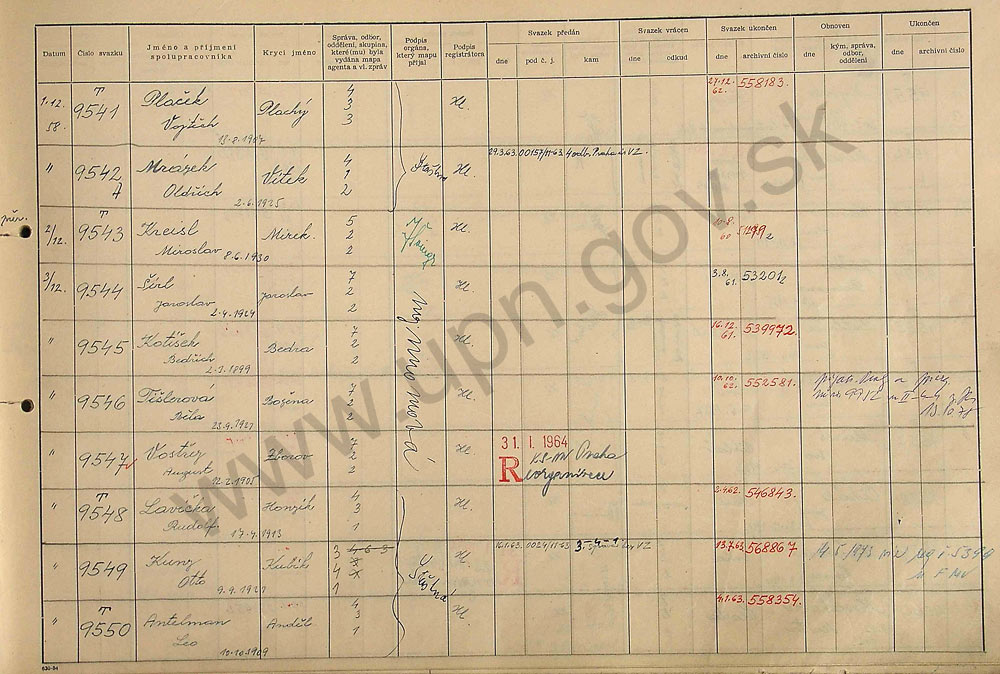 Datum
Číslo svazku
Jméno a příjmení spolupracovníka
Krycí jméno
Správa, odbor,
oddělení, skupina,
které(mu) byla
vydána mapa
agenta a vl. zpráv
Podpis
orgána,
který mapu
přijal
Podpis
registrátora
Svazek předán
dne
pod č. j.
kam
Svazek vrácen
dne
odkud
Svazek ukončen
dne
archivní číslo
Obnoven
dne
kým, správa,
odbor,
oddělení
Ukončen
dne
archivní číslo
1.12. 58. T 9541 Plaček Vojtěch 18.8.1907 Plachý 4 3 3 Hl. 27.12. 62. 558183.
" 9542 A Mrázek Oldřich 2.6.1925 Vítek 4 1 2 Hl. 29.3.63. 00157/11-63 4 odb. Praha
2/12. T 9543 Kreisl Miroslav 8.6.1930 Mirek. 5 2 2 Hl.
3/12. 9544 Širl Jaroslav 2.4.1924 Jaroslav 7 2 2 Hl. 3.8. 61. 53201
" 9545 Kotíšek Bedřich 2.3.1899 Bedra 7 2 2 Hl. 16.12. 61. 539972.
" 9546 Tišlerová Běla 23.9.1921 Božena 7 2 2 Hl. 10.10. 62. 552581.
" 9547 Vostrý August 12.2.1905 Zborov 7 2 2 Hl. 31. I. 1964 R KS-MV Praha reorganizace
" T 9548 Lavička Rudolf 17.4.1913 Honzík 4 3 1 Hl. 2.4.62. 546843.
" 9549 Kunz Otto 9.9.1921 Kubík 3 4 1 Hl. 16.1.63. 0024/11-63 13.7.63. 568867
" T 9550 Antelman Leo 10.10.1909 Anděl 4 3 1 Hl. 4.1.63. 558354.
www.upn.gov.sk